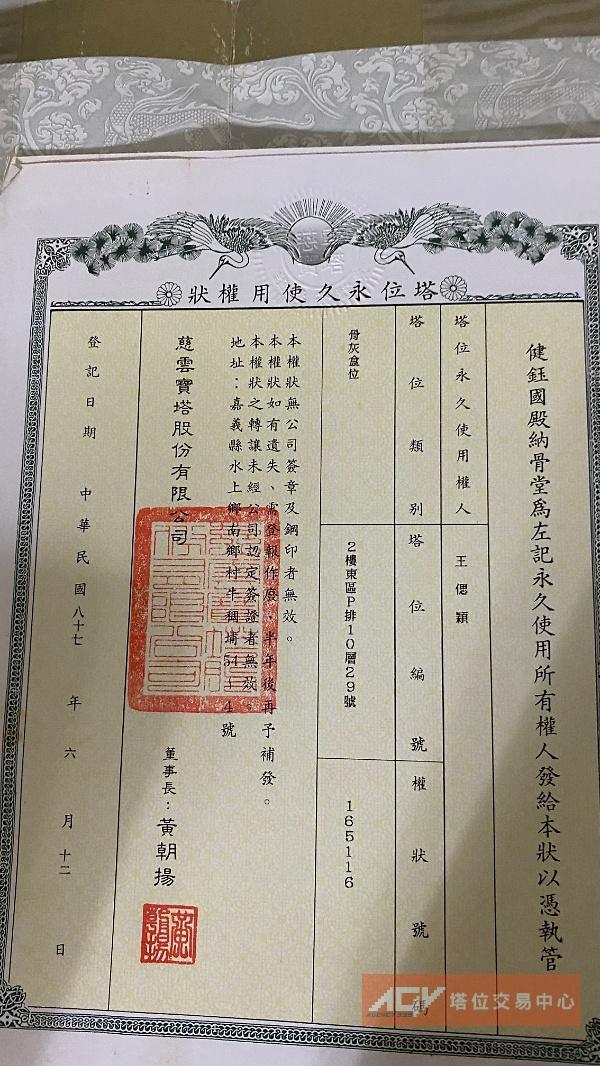 塔位永久使用權狀
健鈺國殿納骨堂為左記永久使用所有權人發給本狀以憑執管
塔位永久使用權人
王偲穎
塔位類別
塔位編號
權狀號碼
骨灰盒位
2樓東區P排10層29號
165116
本權狀無公司簽章及鋼印者無效。
本權狀如有遺失、需登報作廢、半年後再予補發。
本權狀之轉讓未經公司認定簽證者無效。
地址：嘉義縣水上鄉南鄉村牛稠埔54-4號
慈雲寶塔股份有限公司
董事長：黃朝揚
登記日期 中華民國八十七年六月十二日
ACV 塔位交易中心